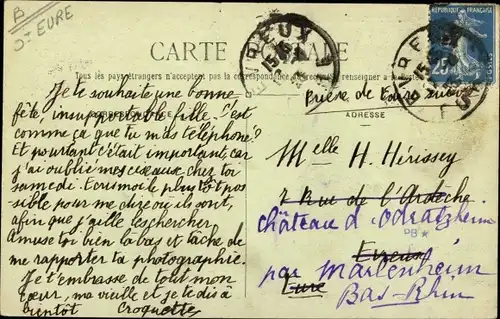 B
Dt EURE
CARTE POSTALE
Tous les pays étrangers n'acceptent pas la correspondance au recto
Prière de faire suivre
ADRESSE
EVREUX
EVREUX
RÉPUBLIQUE FRANÇAISE
25
Je te souhaite une bonne
fête, insupportable fille. C'est
comme ça que tu m'as téléphoné?
Et pourtant c'était important car
j'ai oublié mes ciseaux chez toi
samedi. Ecris moi le plus tôt pos
sible pour me dire où ils sont,
afin que j'aille les chercher.
Amuse toi bien là bas et tâche de
me rapporter ta photographie.
Je t'embrasse de tout mon
cœur, ma vieille et je te dis à
bientôt Croquette
Melle H. Hérissey
2 Rue de l'Ardèche
château d'Odratzheim
Evreux
par Marlenheim
Eure
Bas-Rhin